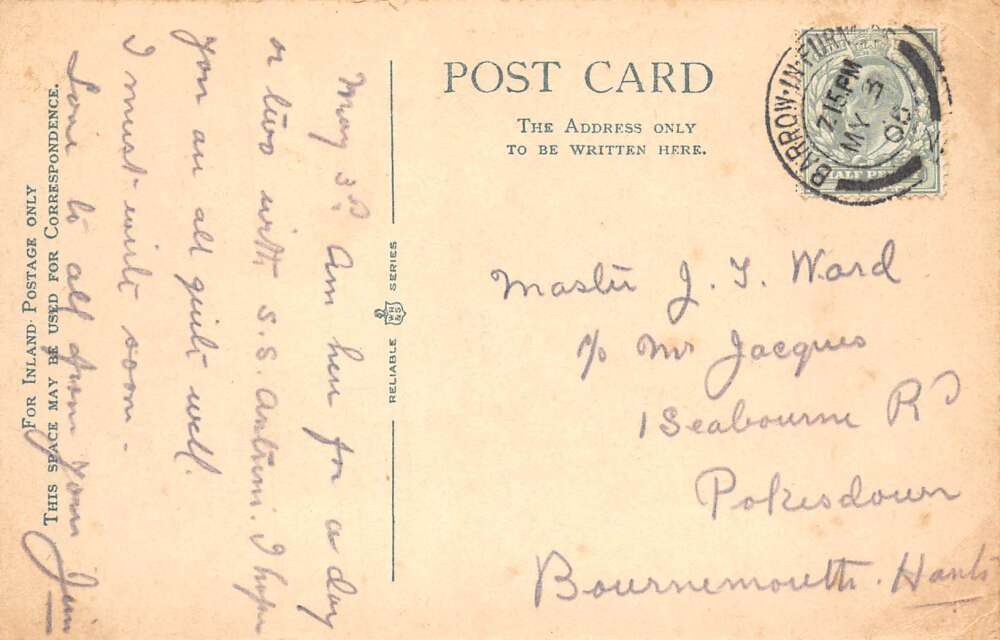 POST CARD
THE ADDRESS ONLY
TO BE WRITTEN HERE.
FOR INLAND POSTAGE ONLY
THIS SPACE MAY BE USED FOR CORRESPONDENCE.
RELIABLE WR&S SERIES
BARROW-IN-FURNESS
2.15 PM
MY 3
06
HALF PENNY
May 3rd. Am here for a day
or two with S.S. Antrim. I hope
you are all quite well.
I must write soon.
Love to all from yours Jim
Master J. T. Ward
c/o Mr Jacques
1 Seabourne Rd
Pokesdown
Bournemouth. Hants